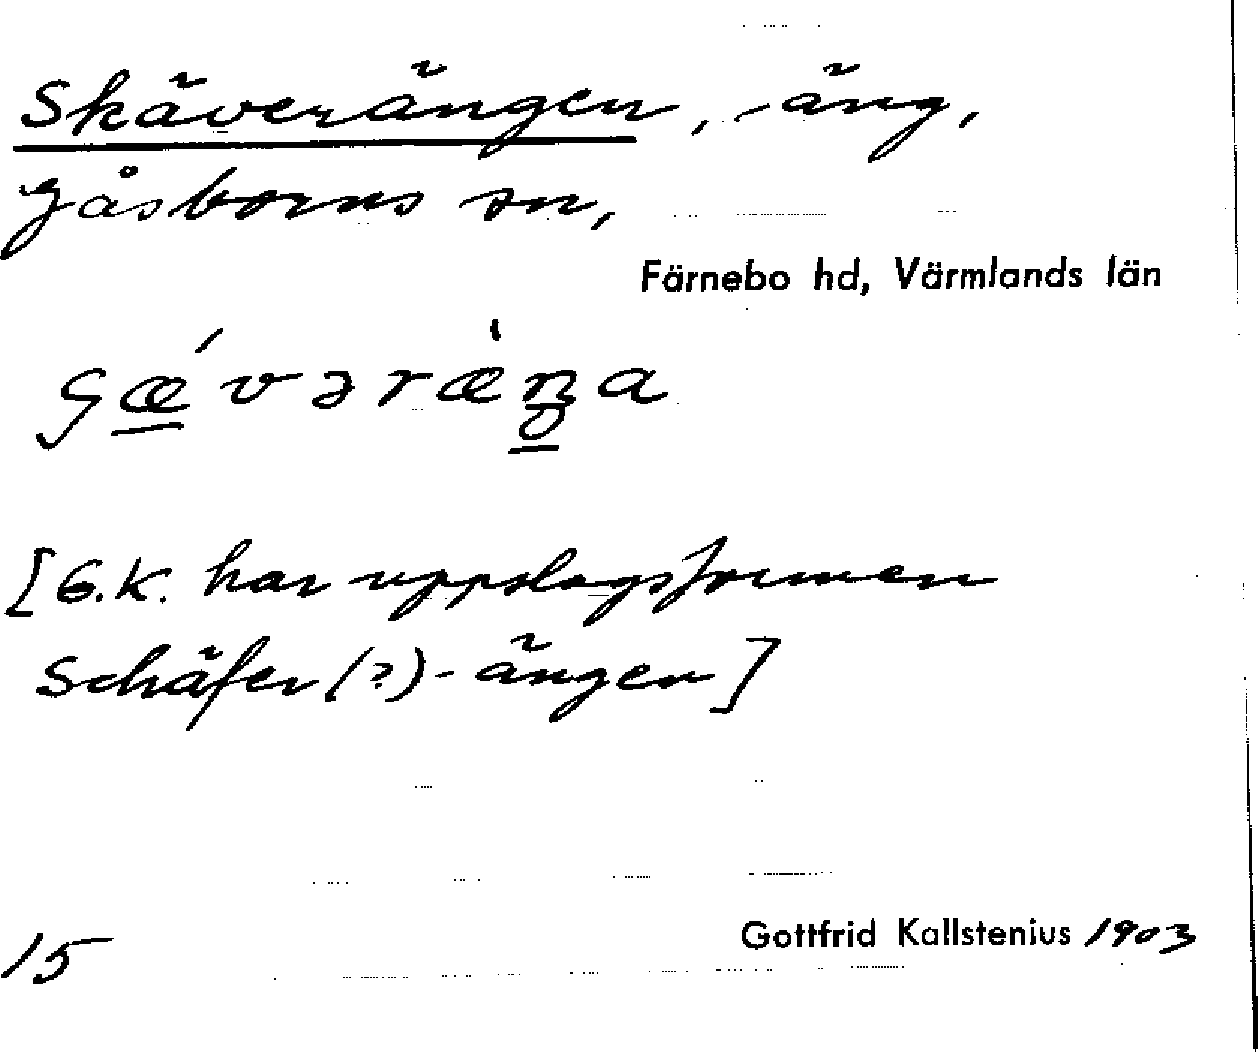 Skäverängen, äng,
Gåsborns sn,
Färnebo hd, Värmlands län
[G.K. har uppslagsformen
Schäfer(?)-ängen]
15
Gottfrid Kallstenius 1903